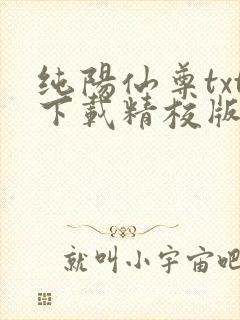 纯陽仙尊txt
下載精校版
就叫小宇宙吧